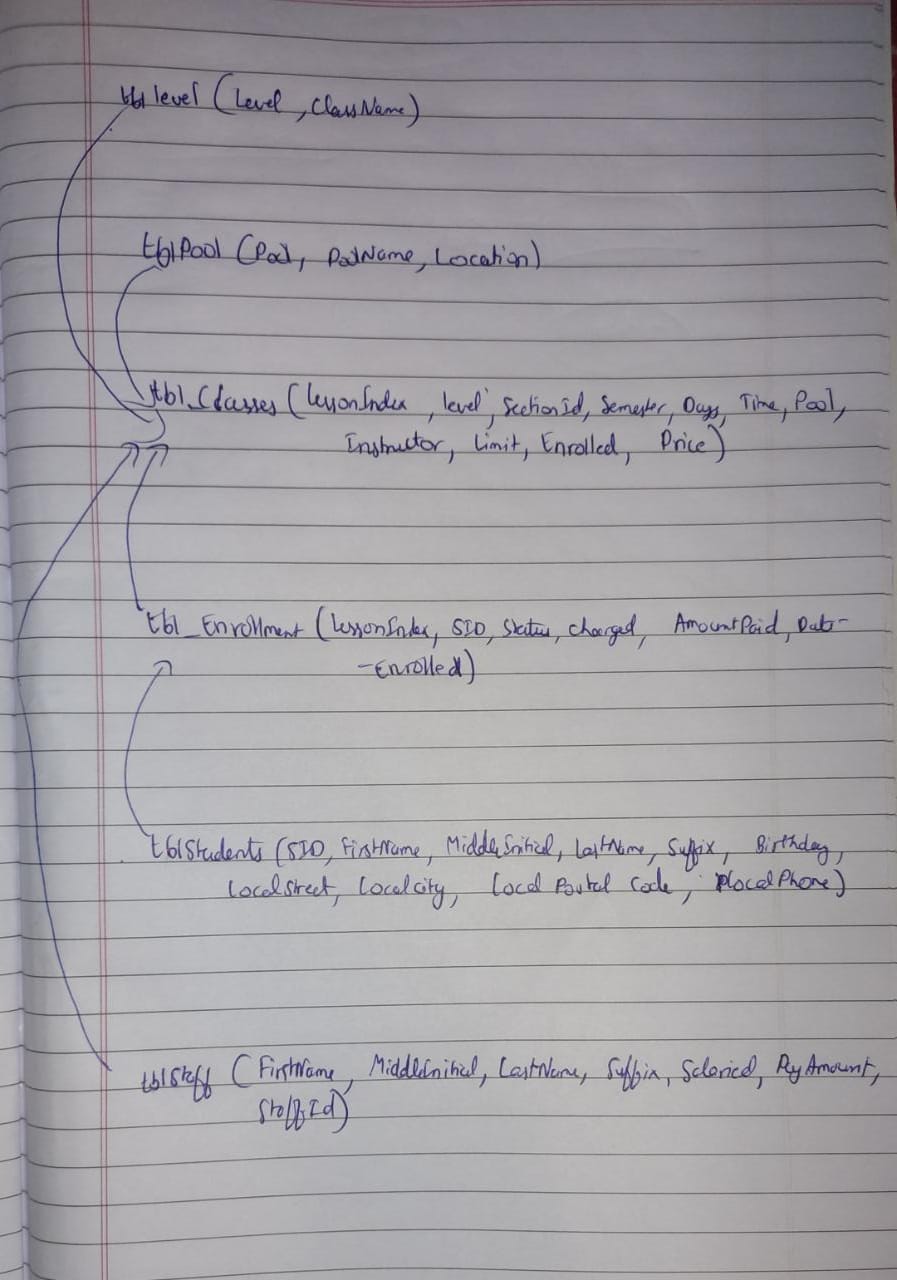 tbl level (Level, ClassName)
tblPool (Pool, PoolName, Location)
tbl_Classes (LessonIndex, level, SectionId, Semester, Days, Time, Pool,
Instructor, Limit, Enrolled, Price)
tbl_Enrollment (LessonIndex, SID, Status, Charged, AmountPaid, Date-
-Enrolled)
tblStudents (SID, FirstName, MiddleInitial, LastName, Suffix, Birthday,
LocalStreet, Localcity, Local Postal Code, LocalPhone)
tblStaff (FirstName, MiddleInitial, LastName, Suffix, Salaried, PayAmount,
StaffId)